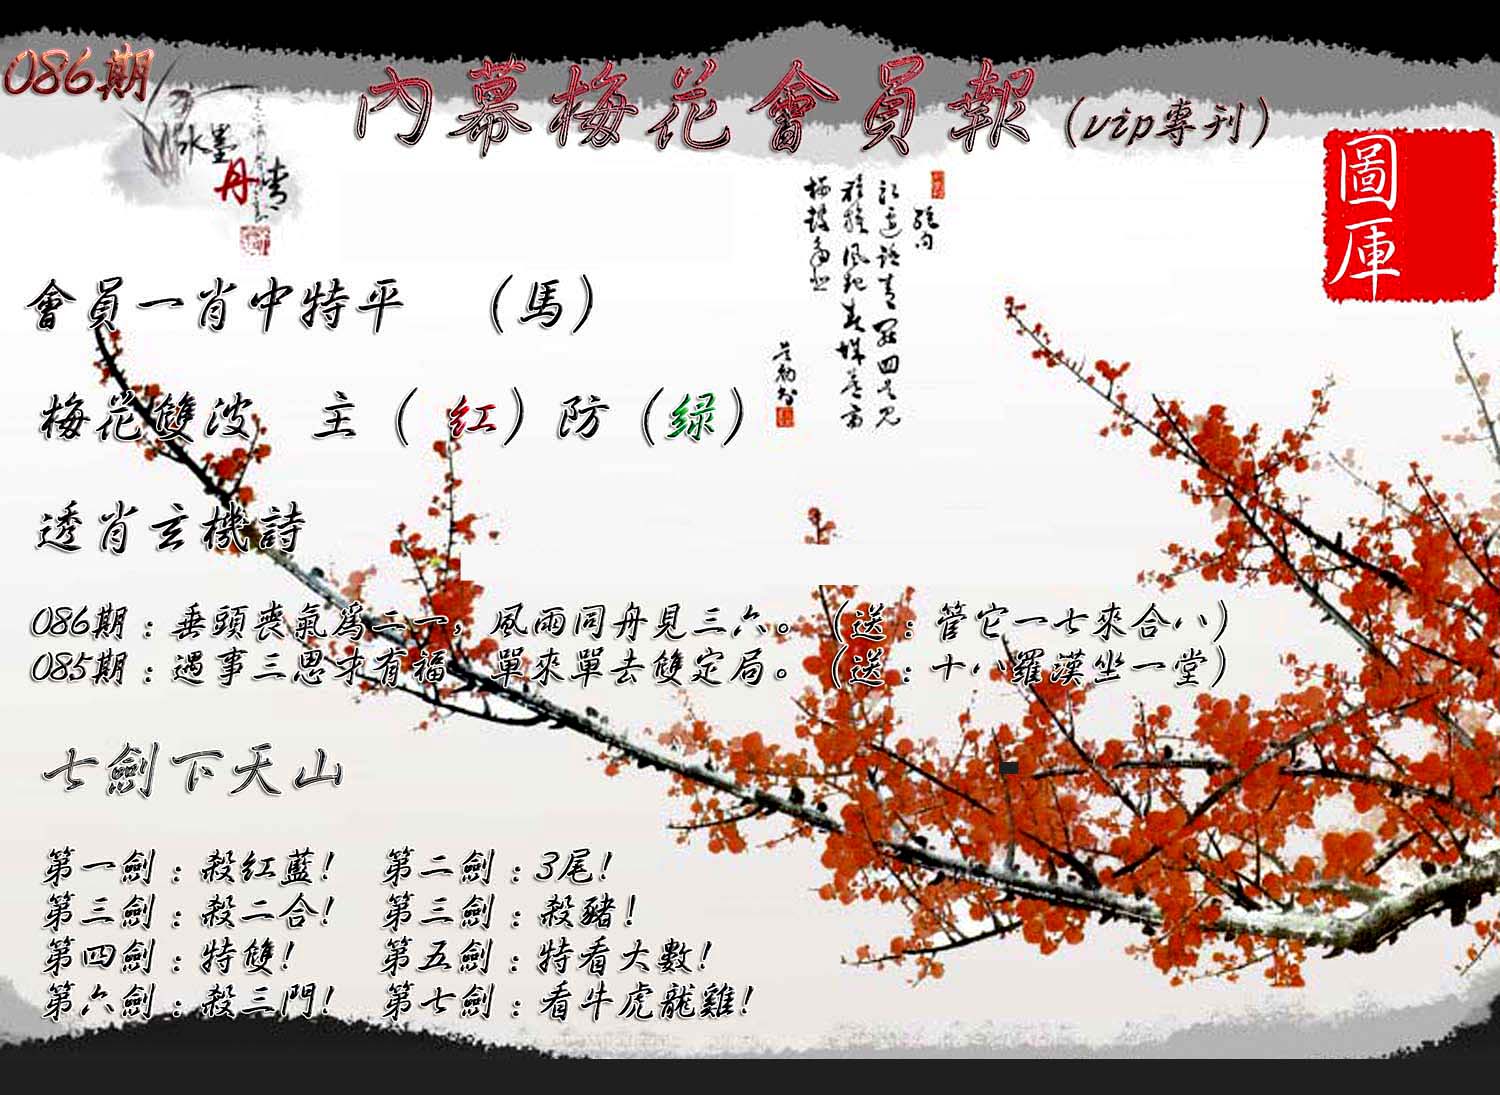 086期
內幕梅花會員報(vip專刊)
水墨
丹青
圖庫
會員一肖中特平 （馬）
梅花雙波 主（紅）防（绿）
透肖玄機詩
086期：垂頭喪氣爲二一，風雨同舟見三六。（送：管它一七來合八）
085期：遇事三思才有福，單來單去雙定局。（送：十八羅漢坐一堂）
七劍下天山
第一劍：殺紅藍！ 第二劍：3尾！
第三劍：殺二合！ 第三劍：殺豬！
第四劍：特雙！ 第五劍：特看大數！
第六劍：殺三門！ 第七劍：看牛虎龍雞！